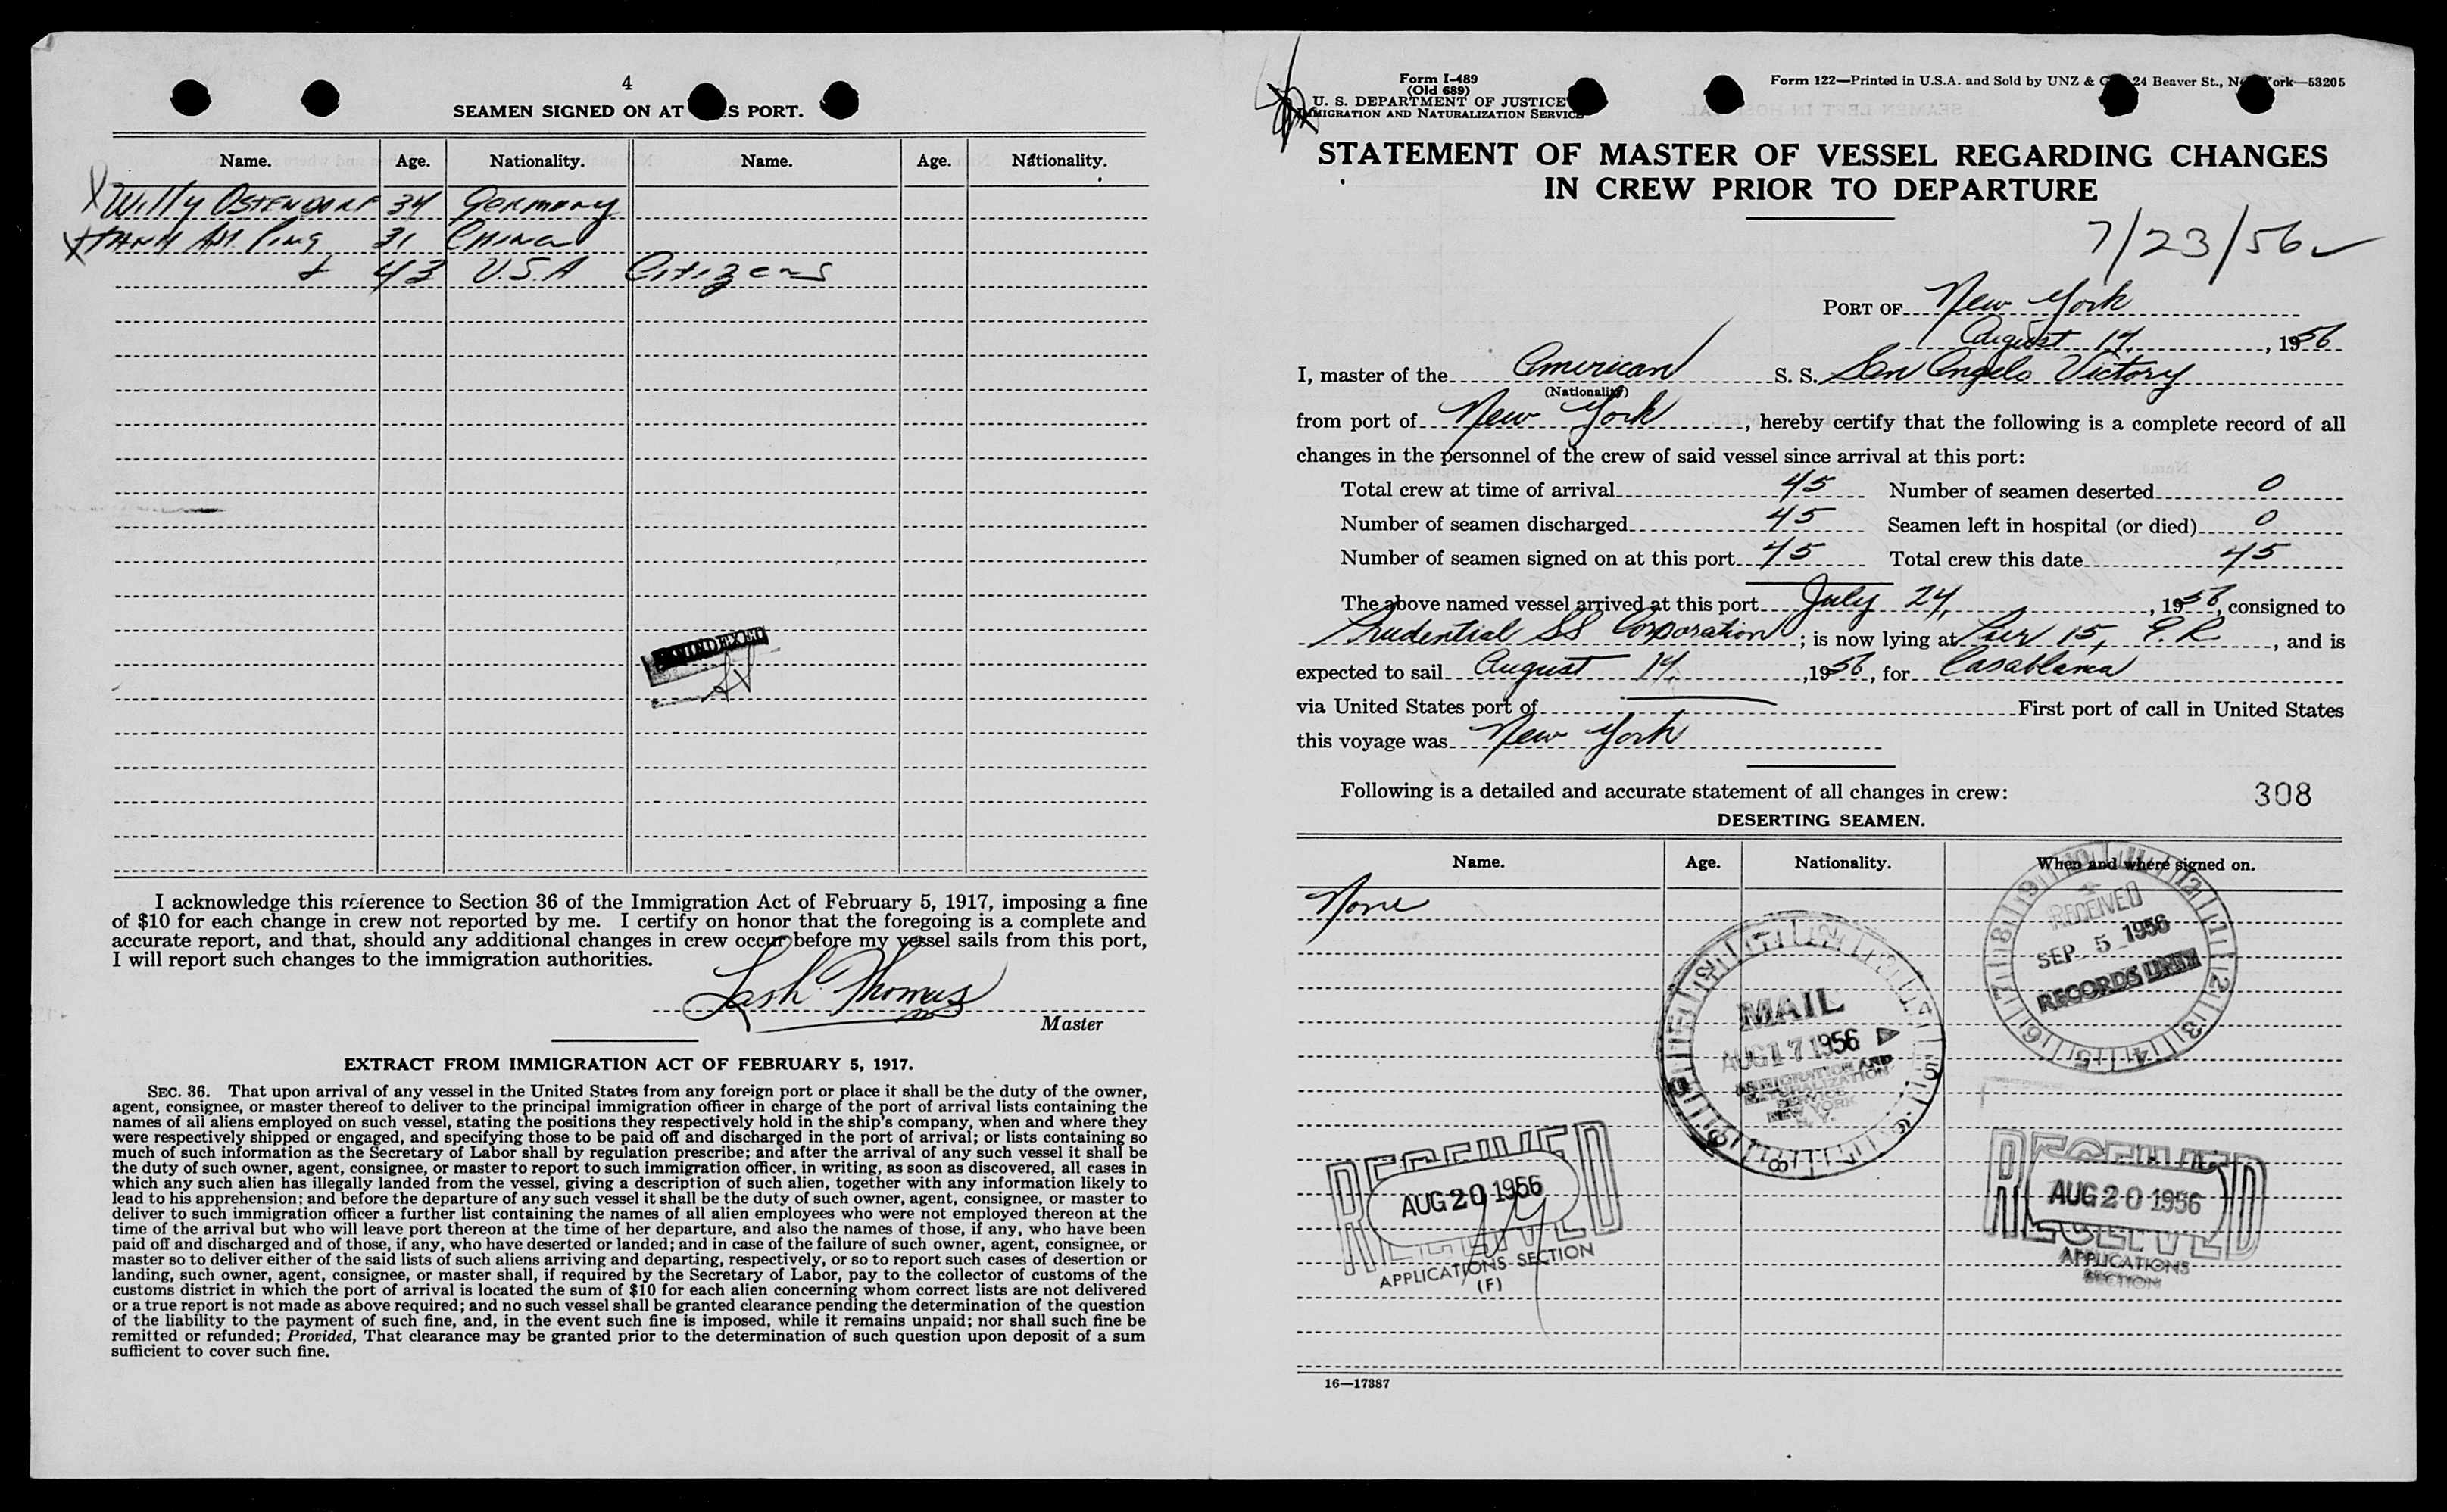 4
SEAMEN SIGNED ON AT S PORT.
Name. Age. Nationality. Name. Age. Nationality.
X Willy OSTENDORF 34 Germany
X Ping 31 China
+ 43 U.S.A Citizens
I acknowledge this reference to Section 36 of the Immigration Act of February 5, 1917, imposing a fine
of $10 for each change in crew not reported by me. I certify on honor that the foregoing is a complete and
accurate report, and that, should any additional changes in crew occur before my vessel sails from this port,
I will report such changes to the immigration authorities.
Lash Thomas
Master
EXTRACT FROM IMMIGRATION ACT OF FEBRUARY 5, 1917.
SEC. 36. That upon arrival of any vessel in the United States from any foreign port or place it shall be the duty of the owner,
agent, consignee, or master thereof to deliver to the principal immigration officer in charge of the port of arrival lists containing the
names of all aliens employed on such vessel, stating the positions they respectively hold in the ship's company, when and where they
were respectively shipped or engaged, and specifying those to be paid off and discharged in the port of arrival; or lists containing so
much of such information as the Secretary of Labor shall by regulation prescribe; and after the arrival of any such vessel it shall be
the duty of such owner, agent, consignee, or master to report to such immigration officer, in writing, as soon as discovered, all cases in
which any such alien has illegally landed from the vessel, giving a description of such alien, together with any information likely to
lead to his apprehension; and before the departure of any such vessel it shall be the duty of such owner, agent, consignee, or master to
deliver to such immigration officer a further list containing the names of all alien employees who were not employed thereon at the
time of the arrival but who will leave port thereon at the time of her departure, and also the names of those, if any, who have been
paid off and discharged and of those, if any, who have deserted or landed; and in case of the failure of such owner, agent, consignee, or
master so to deliver either of the said lists of such aliens arriving and departing, respectively, or so to report such cases of desertion or
landing, such owner, agent, consignee, or master shall, if required by the Secretary of Labor, pay to the collector of customs of the
customs district in which the port of arrival is located the sum of $10 for each alien concerning whom correct lists are not delivered
or a true report is not made as above required; and no such vessel shall be granted clearance pending the determination of the question
of the liability to the payment of such fine, and, in the event such fine is imposed, while it remains unpaid; nor shall such fine be
remitted or refunded; Provided, That clearance may be granted prior to the determination of such question upon deposit of a sum
sufficient to cover such fine.
Form I-489
(Old 689)
U. S. DEPARTMENT OF JUSTICE
IMMIGRATION AND NATURALIZATION SERVICE
Form 122—Printed in U.S.A. and Sold by UNZ & 24 Beaver St., N ork—53205
STATEMENT OF MASTER OF VESSEL REGARDING CHANGES
IN CREW PRIOR TO DEPARTURE
7/23/56
PORT OF New York
August 14, 1956
I, master of the American S. S. San Angelo Victory
(Nationality)
from port of New York, hereby certify that the following is a complete record of all
changes in the personnel of the crew of said vessel since arrival at this port:
Total crew at time of arrival 45 Number of seamen deserted 0
Number of seamen discharged 45 Seamen left in hospital (or died) 0
Number of seamen signed on at this port 45 Total crew this date 45
The above named vessel arrived at this port July 24, 1956, consigned to
Prudential SS Corporation; is now lying at Pier 15, E.R., and is
expected to sail August 14, 1956, for Casablanca
via United States port of First port of call in United States
this voyage was New York
Following is a detailed and accurate statement of all changes in crew:
308
DESERTING SEAMEN.
Name. Age. Nationality. When and where signed on.
None
RECEIVED
SEP 5 1956
RECORDS UNIT
MAIL
AUG 17 1956
IMMIGRATION AND
NATURALIZATION
SERVICE
NEW YORK
N. Y.
RECEIVED
AUG 20 1956
RECEIVED
APPLICATIONS SECTION
(F)
RECEIVED
AUG 20 1956
RECEIVED
APPLICATIONS
SECTION
16—17387